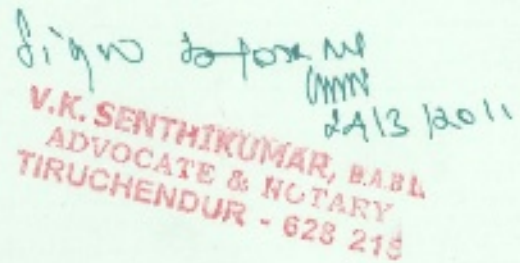 Sign before me
24/3/2011
V.K. SENTHIKUMAR, B.A.B.L
ADVOCATE & NOTARY
TIRUCHENDUR - 628 215